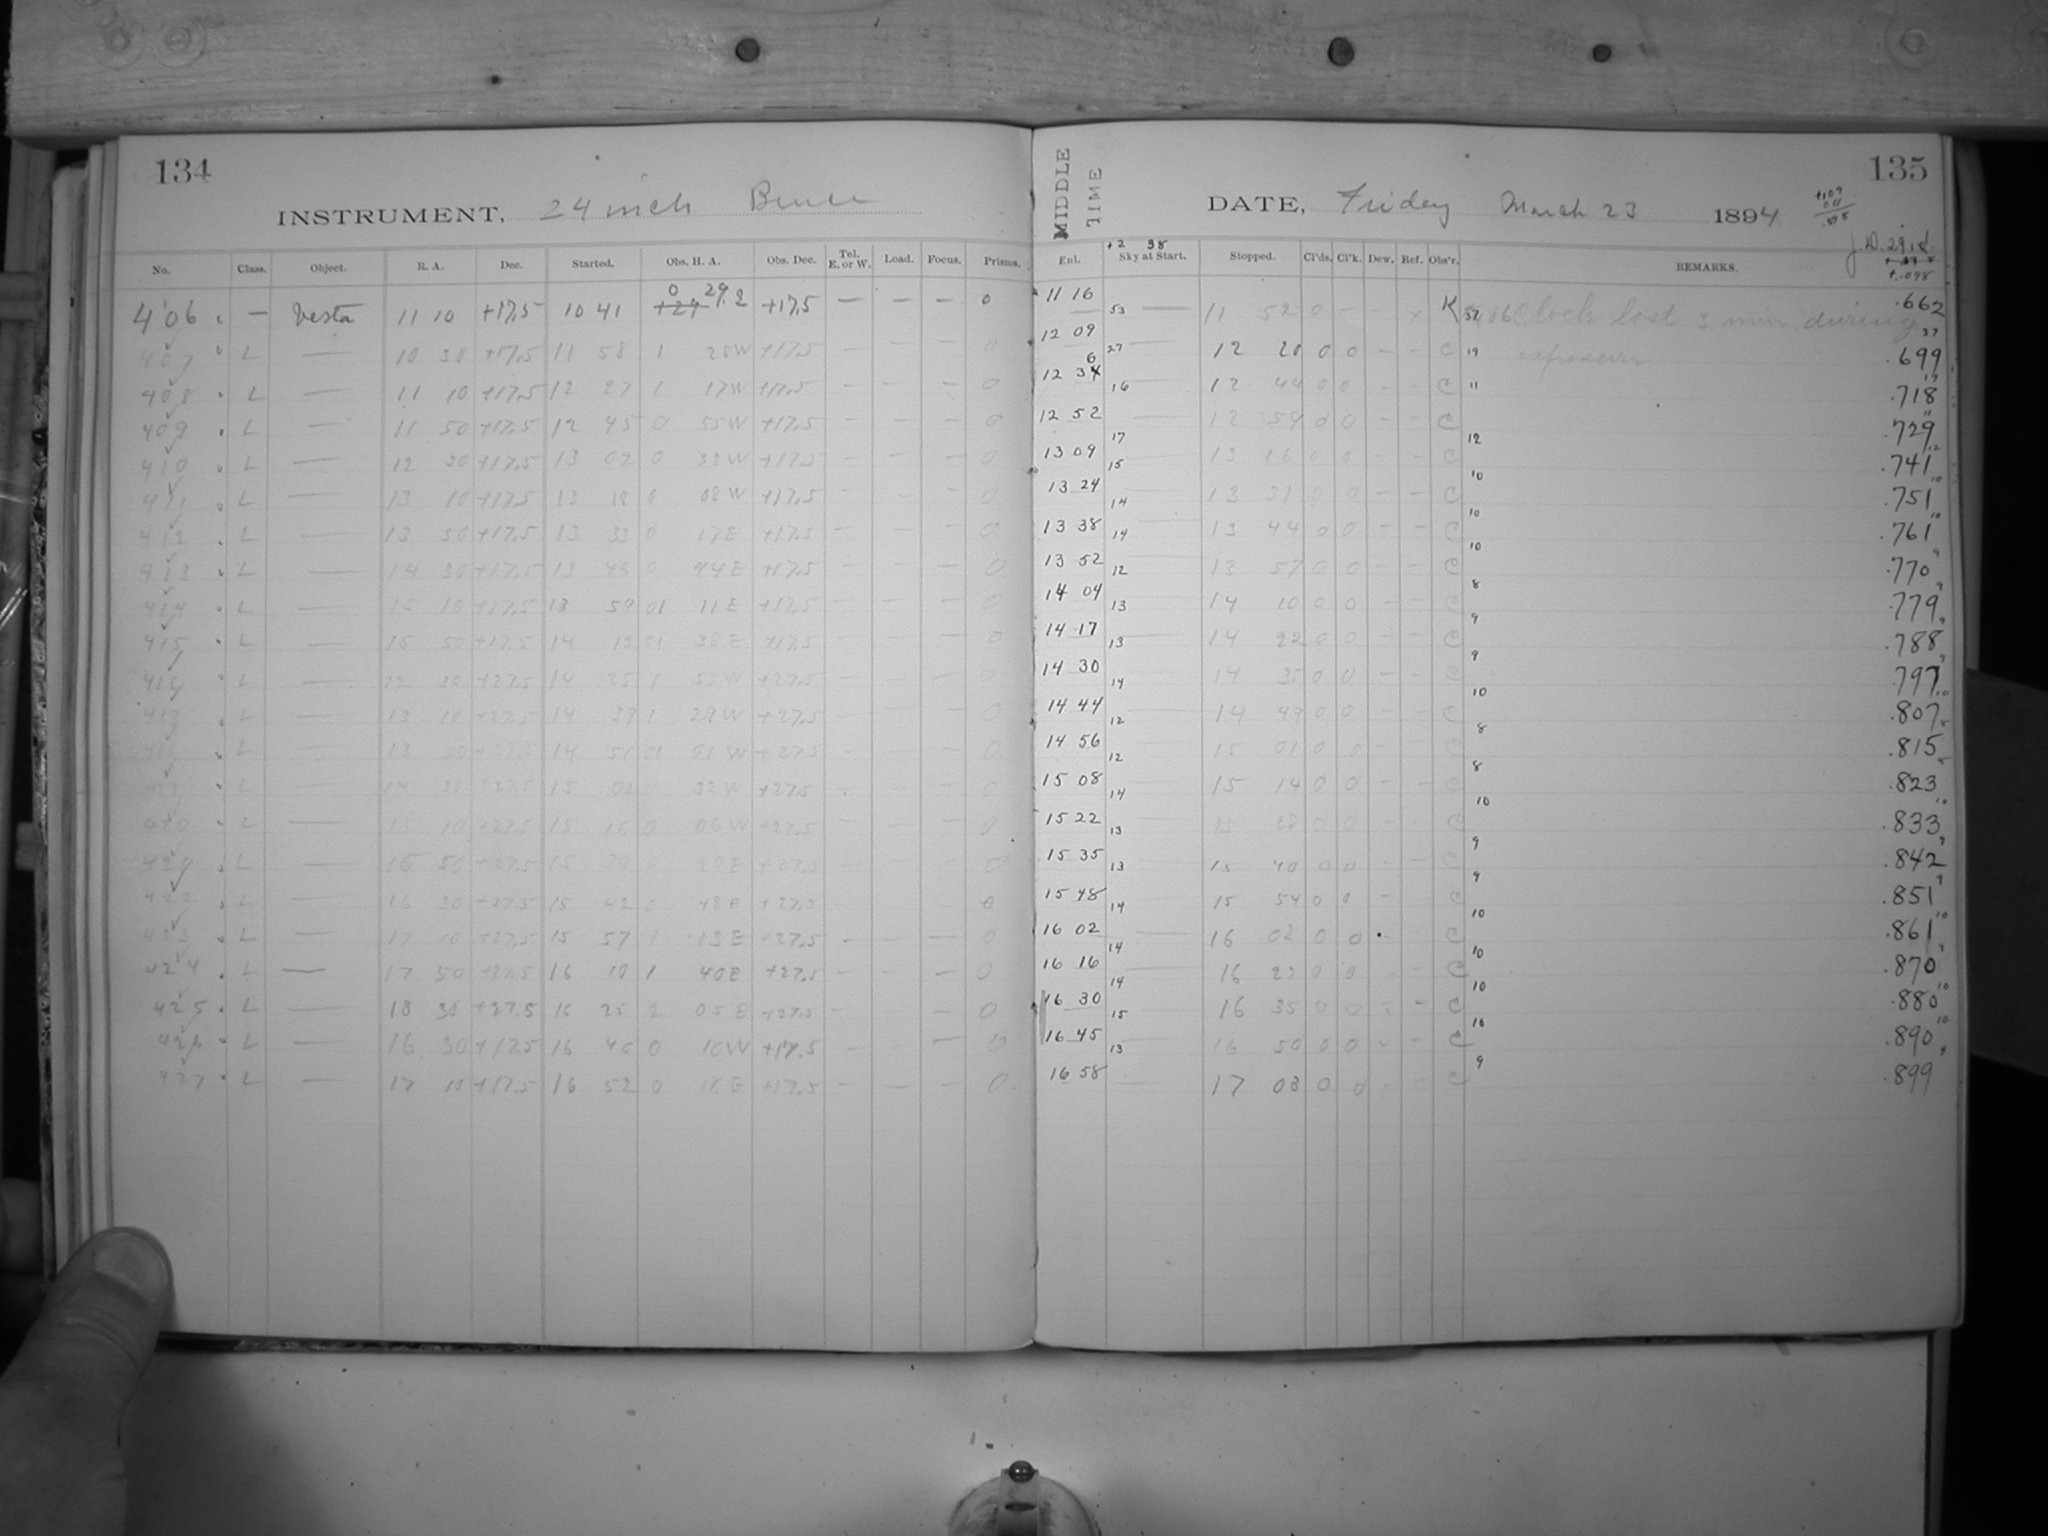 134
INSTRUMENT, 24 inch Bruce
No. Class. Object. R. A. Dec. Started. Obs. H. A. Obs. Dec. Tel. E. or W. Load. Focus. Prisms.
0 29.2
406 — Vesta 11 10 +17.5 10 41 +29 +17.5 — — — 0
407 L — 10 30 +17.5 11 58 1 28W +17.5 — — — 0
408 L — 11 10 +17.5 12 27 1 17W +17.5 — — — 0
409 L — 11 50 +17.5 12 45 0 55W +17.5 — — — 0
410 L — 12 30 +17.5 13 02 0 32W +17.5 — — — 0
411 L — 13 10 +17.5 13 18 0 08W +17.5 — — — 0
412 L — 13 50 +17.5 13 33 0 17E +17.5 — — — 0
413 L — 14 30 +17.5 13 46 0 44E +17.5 — — — 0
414 L — 15 10 +17.5 13 59 01 11E +17.5 — — — 0
415 L — 15 50 +17.5 14 12 01 38E +17.5 — — — 0
L — 12 30 +27.5 14 25 1 55W +27.5 — — — 0
L — 13 10 +27.5 14 39 1 29W +27.5 — — — 0
L — 13 50 +27.5 14 51 01 01W +27.5 — — — 0
L — 14 30 +27.5 15 02 0 32W +27.5 — — — 0
420 L — 15 10 +27.5 15 16 0 06W +27.5 — — — 0
421 L — 50 +27.5 15 30 0 +27.5 — — — 0
422 L — 16 30 +27.5 15 42 0 48E +27.5 — — — 0
423 L — 17 10 +27.5 15 57 1 13E +27.5 — — — 0
424 L — 17 50 +27.5 16 10 1 40E +27.5 — — — 0
425 L — 18 30 +27.5 16 25 2 05E +27.5 — — — 0
426 L — 16 30 +17.5 16 40 0 10W +17.5 — — — 0
427 L — 17 10 +17.5 16 52 0 18E +17.5 — — — 0
135
MIDDLE TIME
DATE, Friday March 23 1894
+2 38
Enl. Sky at Start. Stopped. Cl'ds. Cl'k. Dew. Ref. Obs'r. REMARKS.
+.098
11 16 53 — 11 52 0 — — x K 37 Clock lost 3 min during .662
12 09 27 12 20 0 0 — — C 19 exposure .699
12 36 16 12 44 0 0 — — C 11 .718
12 52 17 — 12 59 0 0 — — C 12 .729
13 09 15 — 13 16 0 0 — — C 10 .741
13 24 14 — 13 31 0 0 — — C 10 .751
13 38 14 — 13 44 0 0 — — C 10 .761
13 52 12 — 13 57 0 0 — — C 8 .770
14 04 13 — 14 10 0 0 — — C 9 .779
14 17 13 — 14 22 0 0 — — C 9 .788
14 30 14 — 14 35 0 0 — — C 10 .797
14 44 12 — 14 49 0 0 — — C 8 .807
14 56 12 — 15 01 0 0 — — C 8 .815
15 08 14 — 15 14 0 0 — — C 10 .823
15 22 13 — 15 28 0 0 — — C 9 .833
15 35 13 — 15 40 0 0 — — C 9 .842
15 48 14 — 15 54 0 0 — C 10 .851
16 02 14 — 16 08 0 0 C 10 .861
16 16 14 — 16 22 0 0 — — C 10 .870
16 30 15 — 16 35 0 0 — — C 10 .880
16 45 13 — 16 50 0 0 — — C 9 .890
16 58 17 03 0 0 — — C .899